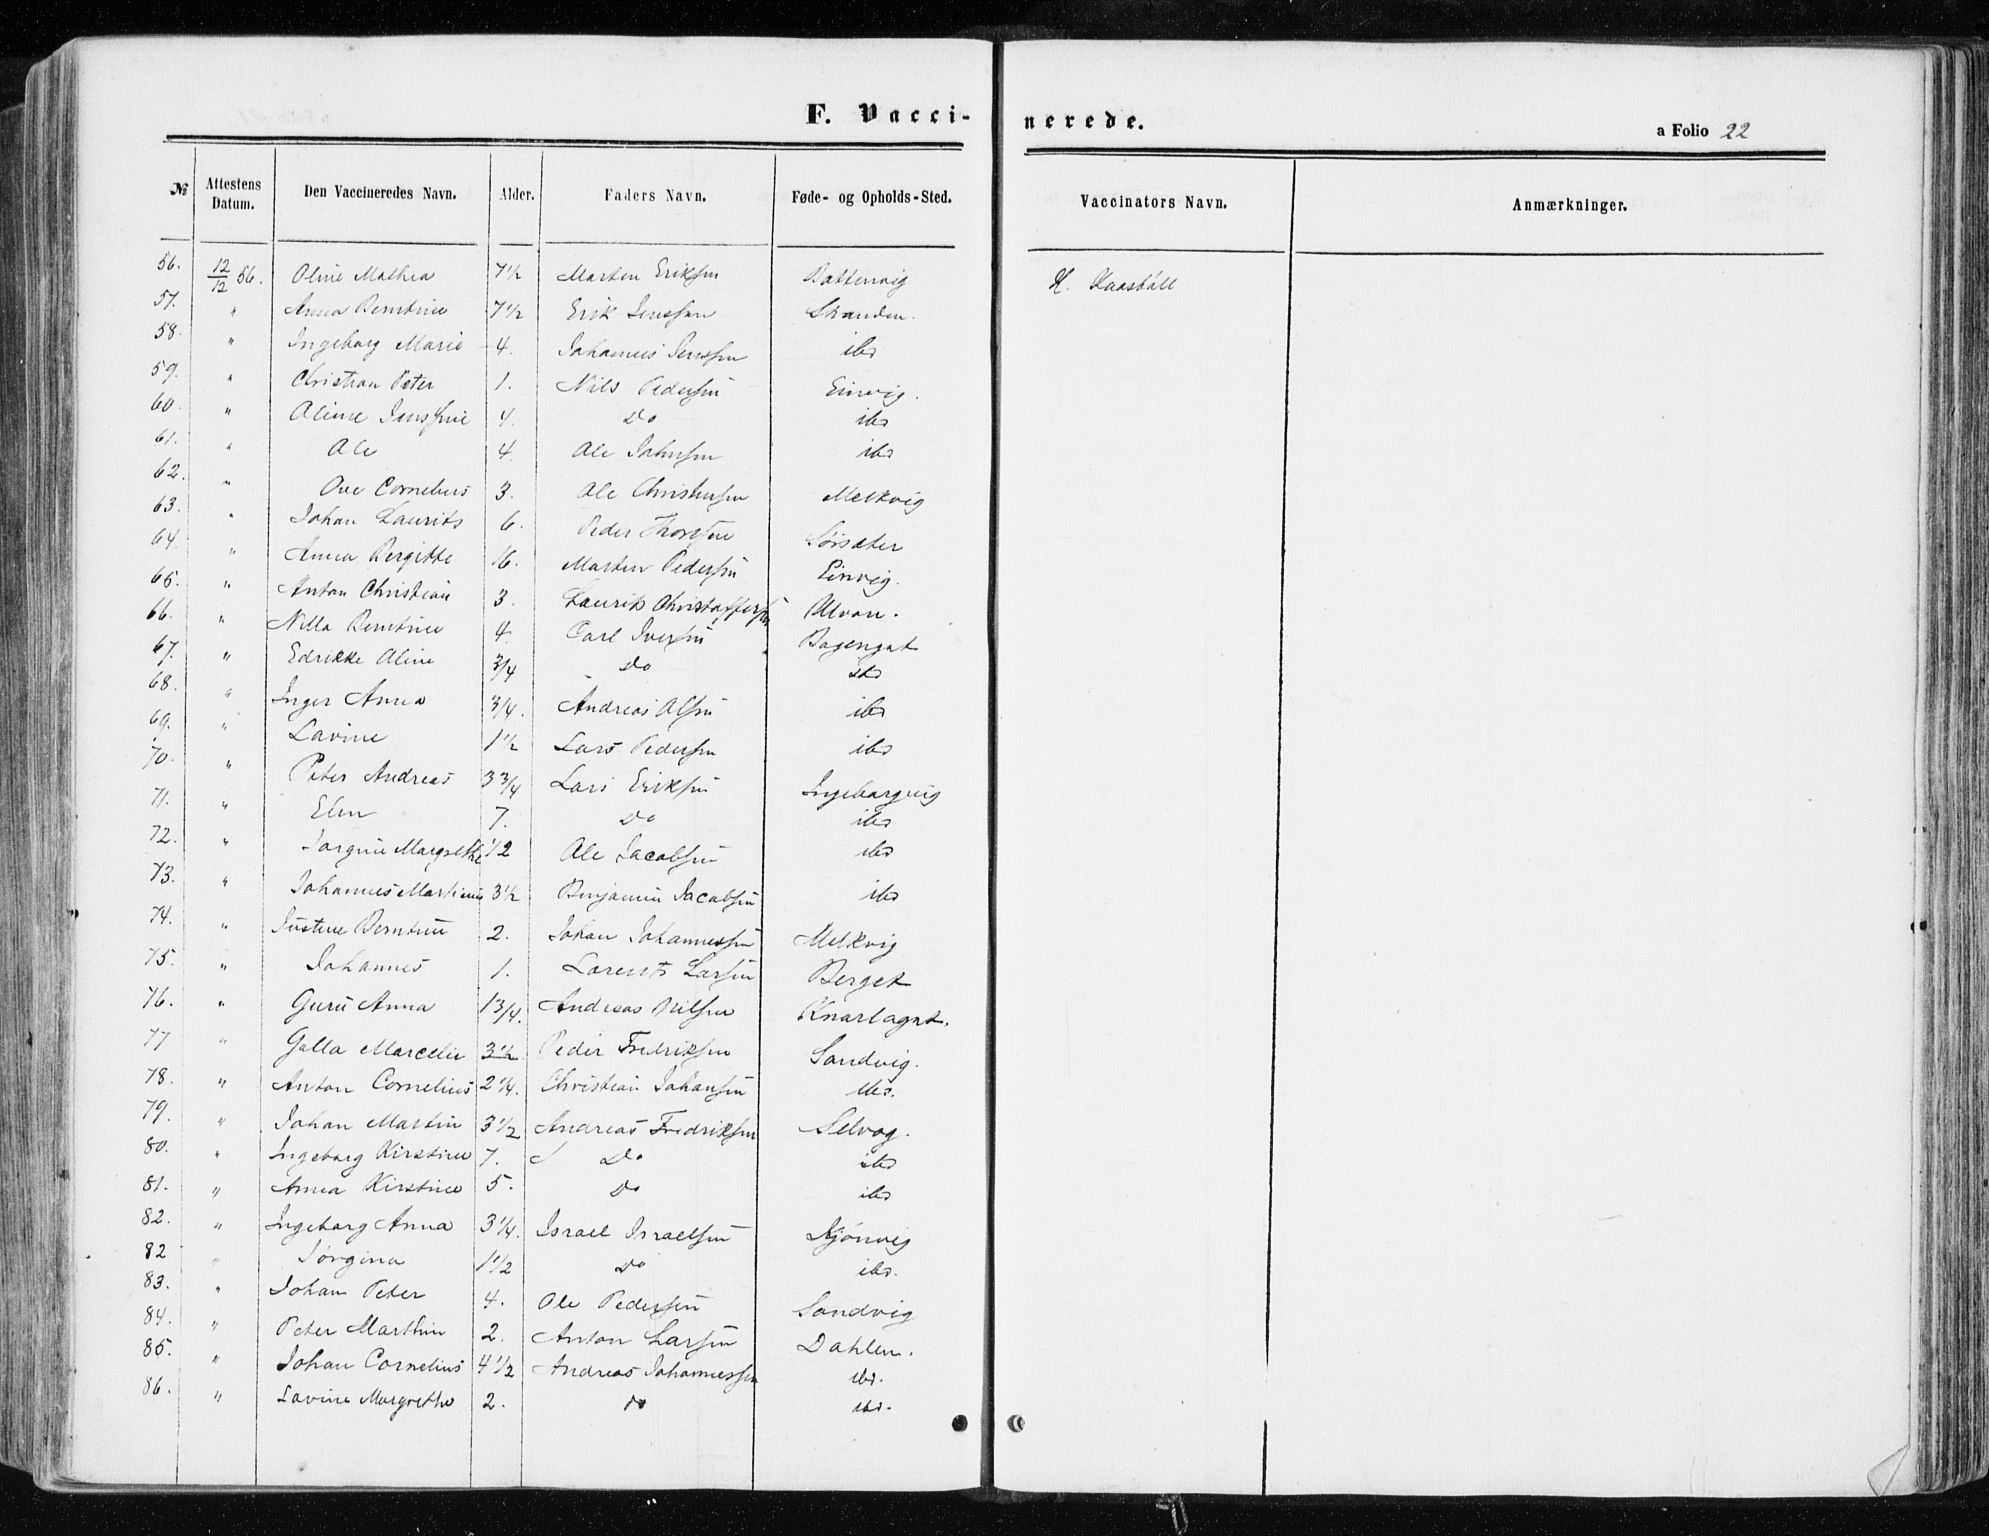 F. Vaccinerede.
a Folio 22
№ Attestens Datum. Den Vaccineredes Navn. Alder. Faders Navn. Føde- og Opholds-Sted. Vaccinators Navn. Anmærkninger.
56. 12/12 56. Oline Mathea 7½ Morten Eriksen Battenvig H. Kaasbøll
57. " Anna Berntine 7½ Erik Jenssen Stranden.
58. " Ingeborg Marie 4. Johannes Jenssen ibd
59. " Christian Peter 1. Nils Pedersen Einvig.
60. " Oline 4. Do ibd
61. " Ole 4. Ole Johnsen ibd
62. " Ove Cornelius 3. Ole Christensen Melkvig
63. " Johan Laurits 6. Peder
64. " Anna Bergitte 16. Morten Pedersen Einvig.
65. " Anton Christian 3. Laurits Christoffersen Ulvøen.
66. " Nilla Berntine 4. Carl Iversen
67. " Edrikke Oline 3/4 Do ibd
68. " Inger Anna 3/4. Andreas Olsen ibd
69. " Lavine 1½ Lars Pedersen ibd
70. " Peter Andreas 3 3/4 Lars Eriksen Ingeborgvig
71. " Elen 7. Do ibd
72. " Jorgine Margrethe ½ Ole Jacobsen ibd
73. " Johannes Martinus 3½ Benjamin Jacobsen ibd
74. " Justine Berntine 2. Johan Johannessen Melkvig
75. " Johannes 1. Lorents Larsen Berget
76. " Guru Anna 1 3/4. Andreas Nilsen Knarlagat.
77 " Gølla Marcelie 3½ Peder Fredriksen Sandvig.
78. " Anton Cornelius 2¼. Christian Johansen ibd.
79. " Johan Martin 3½ Andreas Fredriksen Selvog.
80. " Ingeborg Kirstine 7. Do ibd
81. " Anna Kirstine 5. Do ibd
82. " Ingeborg Anna 3¼. Israel Israelsen Kjønvig
82 " Jørgina 1½ Do ibd.
83. " Johan Peter 4. Ole Pedersen Sandvig
84. " Peter Marthin 2. Anton Larsen Dahlen.
85. " Johan Cornelius 4½ Andreas Johannessen ibd.
86. " Lavine Margrethe 2. do ibd.